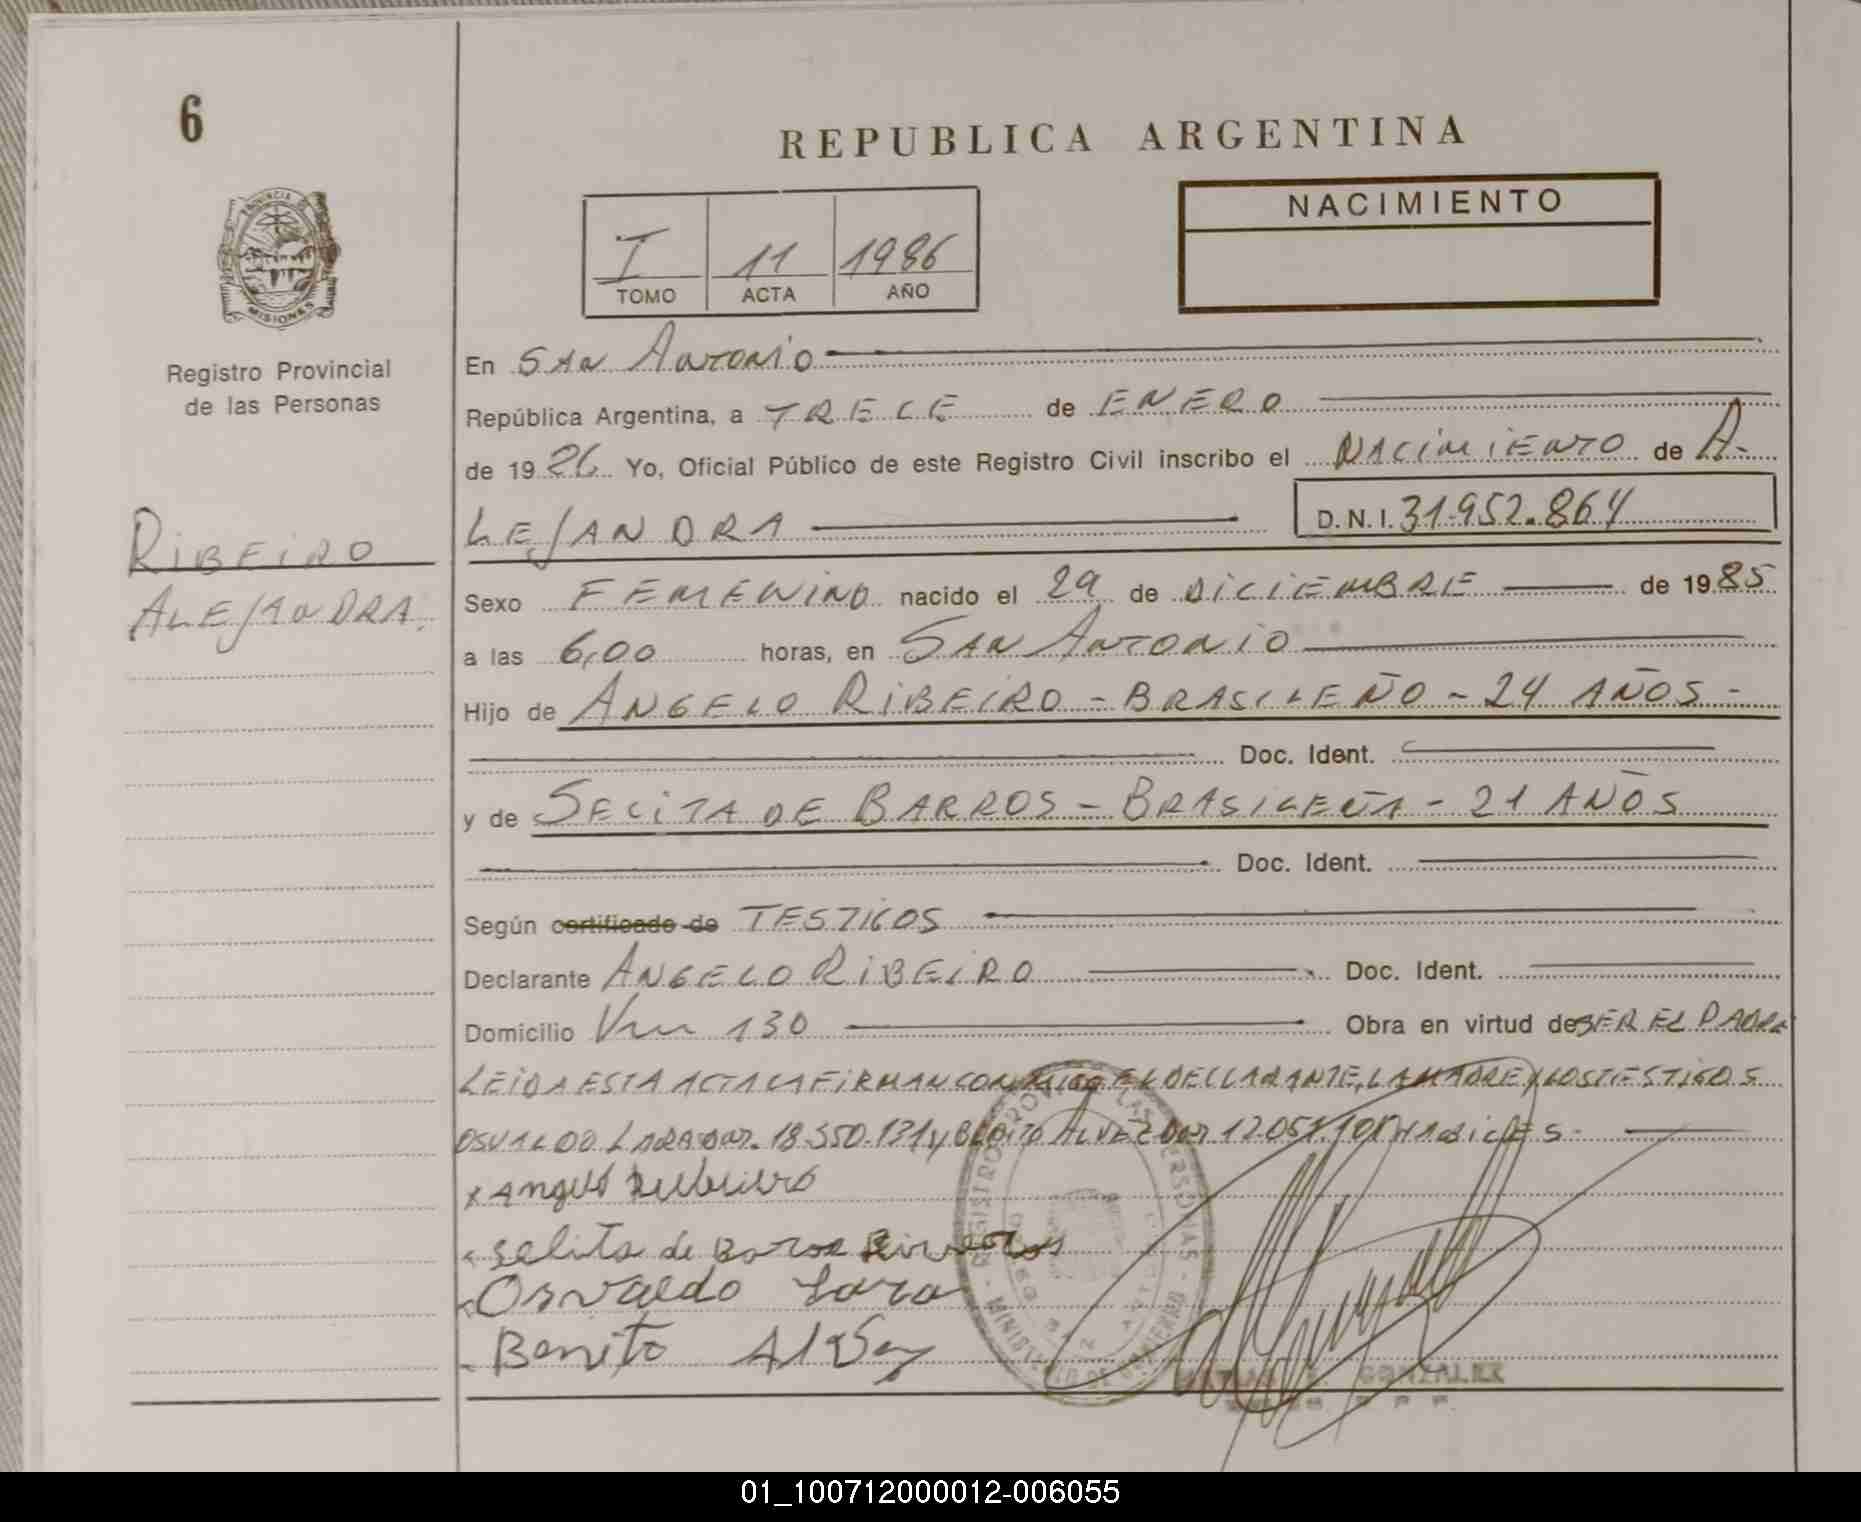 6
REPUBLICA ARGENTINA
PROVINCIA DE
MISIONES
Registro Provincial
de las Personas
I 11 1986
TOMO ACTA AÑO
NACIMIENTO
En SAN ANTONIO
República Argentina, a TRECE de ENERO
de 19 86 Yo, Oficial Público de este Registro Civil inscribo el NACIMIENTO de A-
LEJANDRA D.N.I. 31.952.864
RIBEIRO
ALEJANDRA.
Sexo FEMENINO nacido el 29 de DICIEMBRE de 19 85
a las 6,00 horas, en SAN ANTONIO
Hijo de ANGELO RIBEIRO - BRASILEÑO - 24 AÑOS -
Doc. Ident.
y de SELITA DE BARROS - BRASILEÑA - 21 AÑOS
Doc. Ident.
Según certificado de TESTIGOS
Declarante ANGELO RIBEIRO Doc. Ident.
Domicilio Km 130 Obra en virtud de SER EL PADRE
LEIDA ESTA ACTA LA FIRMAN CONMIGO EL DECLARANTE, LA MADRE Y LOS TESTIGOS
OSVALDO LARA 18.550.131 y BENITO ALVEZ HABILES
x Angelo
x Selita de
x Osvaldo Lara
- Benito Alvez
REGISTRO PROVINCIAL DE LAS PERSONAS
MINISTERIO DE GOBIERNO
GONZALEZ
01_100712000012-006055